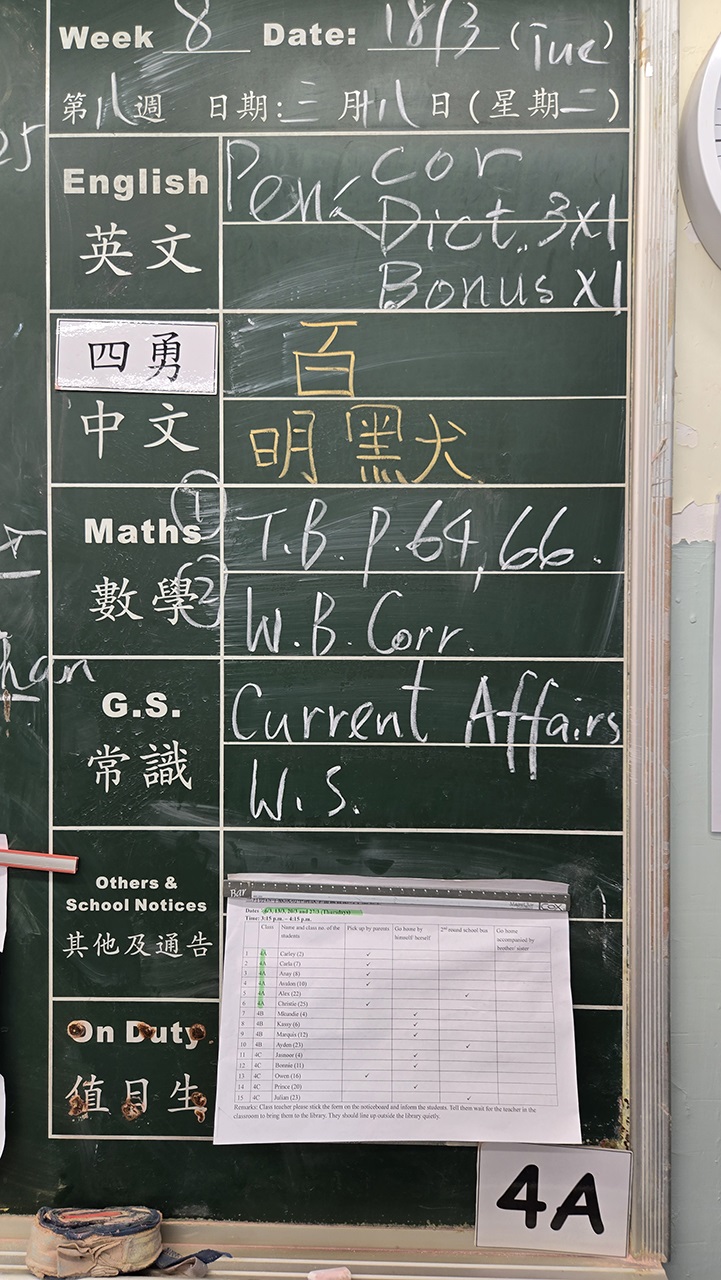 Week 8 Date: 18/3 (Tue)
第八週 日期:三月十八日(星期二)
25
English
英文
Pen< cor
Dict. 3x1
Bonus x1
四勇
中文
百
明 默犬
Maths
數學
① T.B. p.64, 66.
② W.B. Corr.
han
G.S.
常識
Current Affairs
W.S.
Others &
School Notices
其他及通告
Bar
Dates: 6/3, 13/3, 20/3 and 27/3 (Thursdays)
Time: 3:15 p.m. – 4:15 p.m.
Class Name and class no. of the students Pick up by parents Go home by himself/ herself 2nd round school bus Go home accompanied by brother/ sister
1 4A Carley (2) ✓
2 4A Carla (7) ✓
3 4A Anay (8) ✓
4 4A Avalon (10) ✓
5 4A Alex (22) ✓
6 4A Christie (25) ✓
7 4B (4) ✓
8 4B Kassy (6) ✓
9 4B Marquis (12) ✓
10 4B Aydon (23) ✓
11 4C (4) ✓
12 4C Bonnie (11) ✓
13 4C Owen (16) ✓
14 4C Prince (20) ✓
15 4C Julian (23) ✓
Remarks: Class teacher please stick the form on the noticeboard and inform the students. Tell them wait for the teacher in the
classroom to bring them to the library. They should line up outside the library quietly.
On Duty
值日生
4A